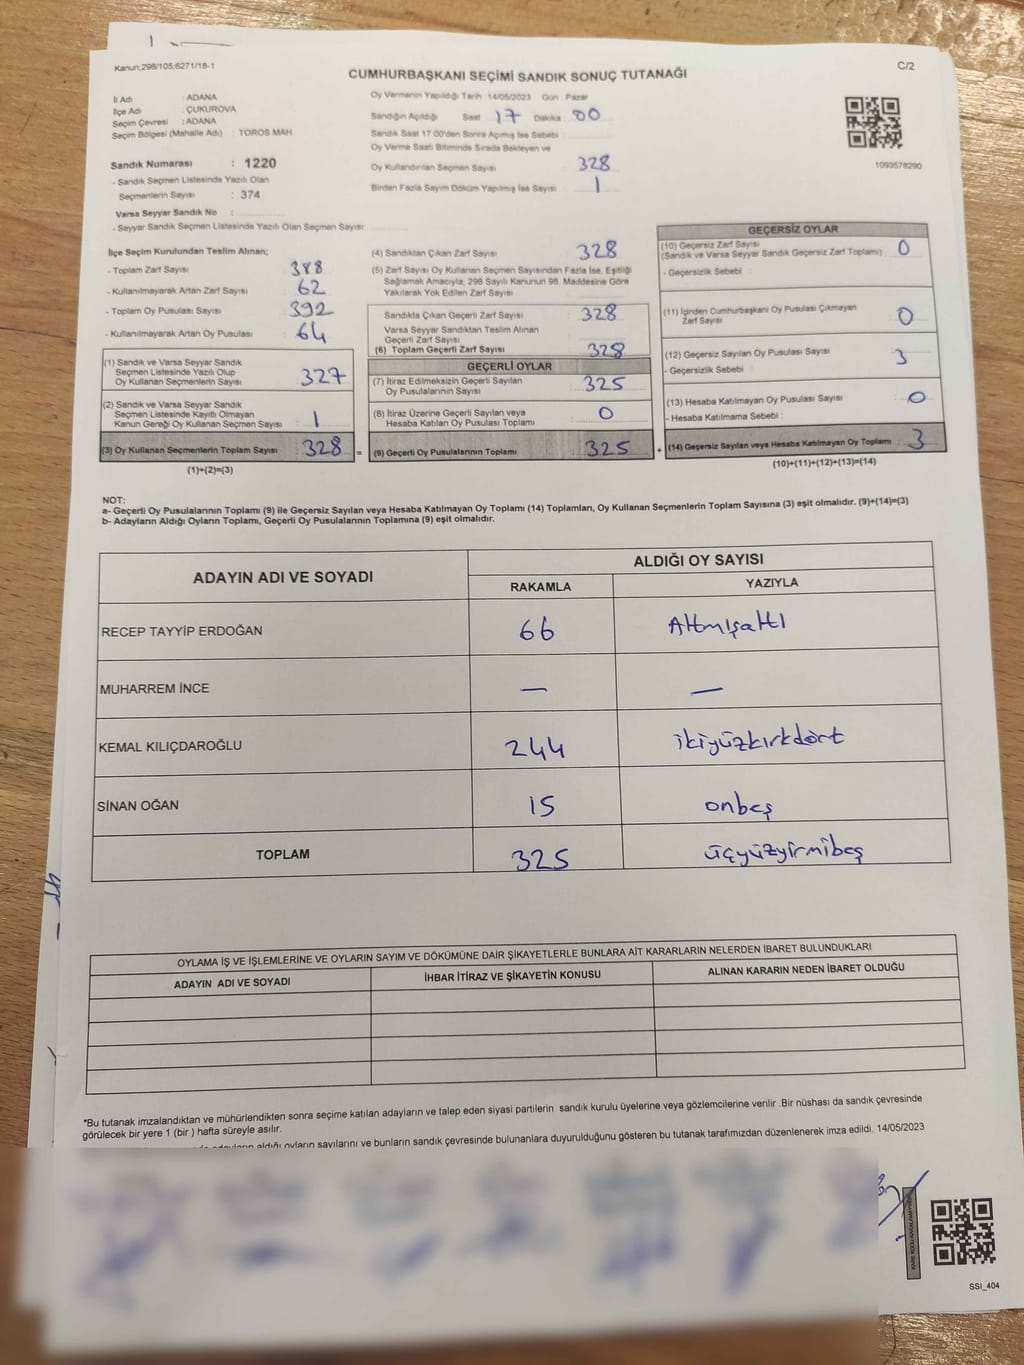 Kanun;298/105;6271/18-1
C/2
CUMHURBAŞKANI SEÇİMİ SANDIK SONUÇ TUTANAĞI
İl Adı : ADANA
İlçe Adı : ÇUKUROVA
Seçim Çevresi : ADANA
Seçim Bölgesi (Mahalle Adı) : TOROS MAH.
Sandık Numarası : 1220
- Sandık Seçmen Listesinde Yazılı Olan
Seçmenlerin Sayısı : 374
Varsa Seyyar Sandık No :
- Seyyar Sandık Seçmen Listesinde Yazılı Olan Seçmen Sayısı
Oy Vermenin Yapıldığı Tarih :14/05/2023 Gün : Pazar
Sandığın Açıldığı Saat 17 Dakika 00
Sandık Saat 17.00'den Sonra Açılmış İse Sebebi
Oy Verme Saati Bitiminde Sırada Bekleyen ve
Oy Kullandırılan Seçmen Sayısı 328
Birden Fazla Sayım Döküm Yapılmış İse Sayısı 1
1093578290
İlçe Seçim Kurulundan Teslim Alınan;
- Toplam Zarf Sayısı : 388
- Kullanılmayarak Artan Zarf Sayısı : 62
- Toplam Oy Pusulası Sayısı : 392
- Kullanılmayarak Artan Oy Pusulası : 64
(1) Sandık ve Varsa Seyyar Sandık
Seçmen Listesinde Yazılı Olup
Oy Kullanan Seçmenlerin Sayısı : 327
(2) Sandık ve Varsa Seyyar Sandık
Seçmen Listesinde Kayıtlı Olmayan
Kanun Gereği Oy Kullanan Seçmen Sayısı : 1
(3) Oy Kullanan Seçmenlerin Toplam Sayısı : 328 =
(1)+(2)=(3)
(4) Sandıktan Çıkan Zarf Sayısı : 328
(5) Zarf Sayısı Oy Kullanan Seçmen Sayısından Fazla İse, Eşitliği
Sağlamak Amacıyla, 298 Sayılı Kanunun 98. Maddesine Göre
Yakılarak Yok Edilen Zarf Sayısı :
Sandıkta Çıkan Geçerli Zarf Sayısı : 328
Varsa Seyyar Sandıktan Teslim Alınan
Geçerli Zarf Sayısı :
(6) Toplam Geçerli Zarf Sayısı : 328
GEÇERLİ OYLAR
(7) İtiraz Edilmeksizin Geçerli Sayılan
Oy Pusulalarının Sayısı : 325
(8) İtiraz Üzerine Geçerli Sayılan veya
Hesaba Katılan Oy Pusulası Toplamı : 0
(9) Geçerli Oy Pusulalarının Toplamı : 325 +
GEÇERSİZ OYLAR
(10) Geçersiz Zarf Sayısı
(Sandık ve Varsa Seyyar Sandık Geçersiz Zarf Toplamı) : 0
- Geçersizlik Sebebi :
(11) İçinden Cumhurbaşkanı Oy Pusulası Çıkmayan
Zarf Sayısı : 0
(12) Geçersiz Sayılan Oy Pusulası Sayısı : 3
- Geçersizlik Sebebi :
(13) Hesaba Katılmayan Oy Pusulası Sayısı : 0
- Hesaba Katılmama Sebebi :
(14) Geçersiz Sayılan veya Hesaba Katılmayan Oy Toplamı : 3
(10)+(11)+(12)+(13)=(14)
NOT:
a- Geçerli Oy Pusulalarının Toplamı (9) ile Geçersiz Sayılan veya Hesaba Katılmayan Oy Toplamı (14) Toplamları, Oy Kullanan Seçmenlerin Toplam Sayısına (3) eşit olmalıdır. (9)+(14)=(3)
b- Adayların Aldığı Oyların Toplamı, Geçerli Oy Pusulalarının Toplamına (9) eşit olmalıdır.
ADAYIN ADI VE SOYADI
ALDIĞI OY SAYISI
RAKAMLA YAZIYLA
RECEP TAYYİP ERDOĞAN 66 Altmışaltı
MUHARREM İNCE — —
KEMAL KILIÇDAROĞLU 244 ikiyüzkırkdört
SİNAN OĞAN 15 onbeş
TOPLAM 325 üçyüzyirmibeş
OYLAMA İŞ VE İŞLEMLERİNE VE OYLARIN SAYIM VE DÖKÜMÜNE DAİR ŞİKAYETLERLE BUNLARA AİT KARARLARIN NELERDEN İBARET BULUNDUKLARI
ADAYIN ADI VE SOYADI İHBAR İTİRAZ VE ŞİKAYETİN KONUSU ALINAN KARARIN NEDEN İBARET OLDUĞU
*Bu tutanak imzalandıktan ve mühürlendikten sonra seçime katılan adayların ve talep eden siyasi partilerin sandık kurulu üyelerine veya gözlemcilerine verilir .Bir nüshası da sandık çevresinde
görülecek bir yere 1 (bir ) hafta süreyle asılır.
aldığı oyların sayılarını ve bunların sandık çevresinde bulunanlara duyurulduğunu gösteren bu tutanak tarafımızdan düzenlenerek imza edildi. 14/05/2023
SSI_404